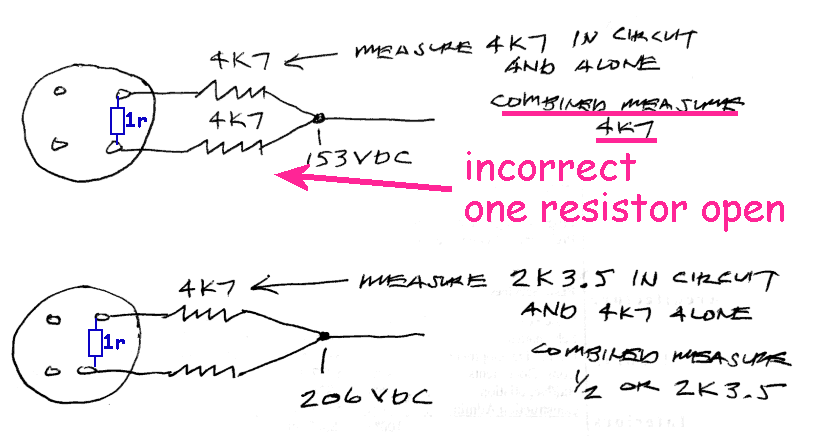 4K7 ← MEASURE 4K7 IN CIRCUIT
AND ALONE
1r
4K7
COMBINED MEASURE
4K7
153 VDC
incorrect
one resistor open
4K7 ← MEASURE 2K3.5 IN CIRCUIT
AND 4K7 ALONE
1r
COMBINED MEASURE
1/2 OR 2K3.5
206 VDC